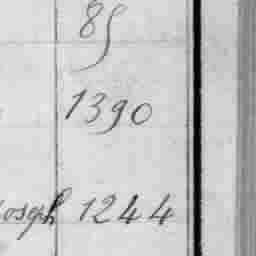 85
1390
Joseph 1244